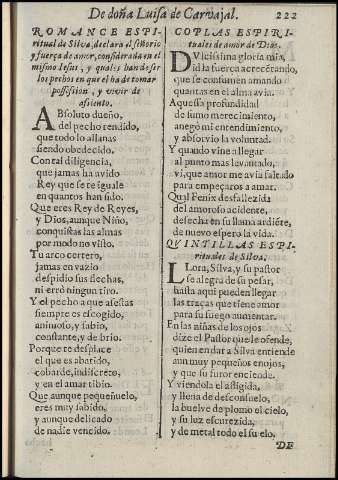 De doña Luisa de Carvajal. 222
ROMANCE ESPI-
ritual de Silva, declara el señorio
y fuerça de amor, considerada en el
mismo Iesus, y quales han de ser
los pechos en que el ha de tomar
possession, y vivir de
asiento.
ABsoluto dueño,
del pecho rendido,
que todo lo allanas
siendo obedecido.
Con tal diligencia,
que jamas ha avido
Rey que se te iguale
en quantos han sido.
Que eres Rey de Reyes,
y Dios, aunque Niño,
conquistas las almas
por modo no visto.
Tu arco certero,
jamas en vazio
despidio sus flechas,
ni erró ningun tiro.
Y el pecho a que asestas
siempre es escogido,
animoso, y sabio,
constante, y de brio.
Porque te desplace
el que es abatido,
cobarde, indiscreto,
y en el amar tibio.
Que aunque pequeñuelo,
eres muy sabido,
y aunque delicado
de nadie vencido.
COPLAS ESPIRI-
tuales de amor de Dios.
DVlcissima gloria mia,
de la fuerça acrecẽtando,
que se consumen amando
quantas en el alma avia.
Aquessa profundidad
de sumo merecimiento,
anegò mi entendimiento,
y absorvio la voluntad.
Y quando vine a llegar
al punto mas levantado,
vi, que amor me avia faltado
para empeçar os a amar.
Qual Fenix desfallezida
del amoroso accidente,
desecha en su llama ardiẽte,
de nuevo espero la vida.
QVINTILLAS ESPI-
rituales de Silva.
LLora, Silva, y su pastor
se alegra de su pesar,
hasta aqui pueden llegar
las traças que tiene amor
para su fuego aumentar.
En las niñas de los ojos
dize el Pastor que le ofende,
quien endar a Silva entiende
aun muy pequeños enojos,
y que su furor enciende.
Y viendola afligida,
y llena de desconsuelo,
la buelve de plomo el cielo,
y su luz escurezida,
y de metal todo el suelo.
DE